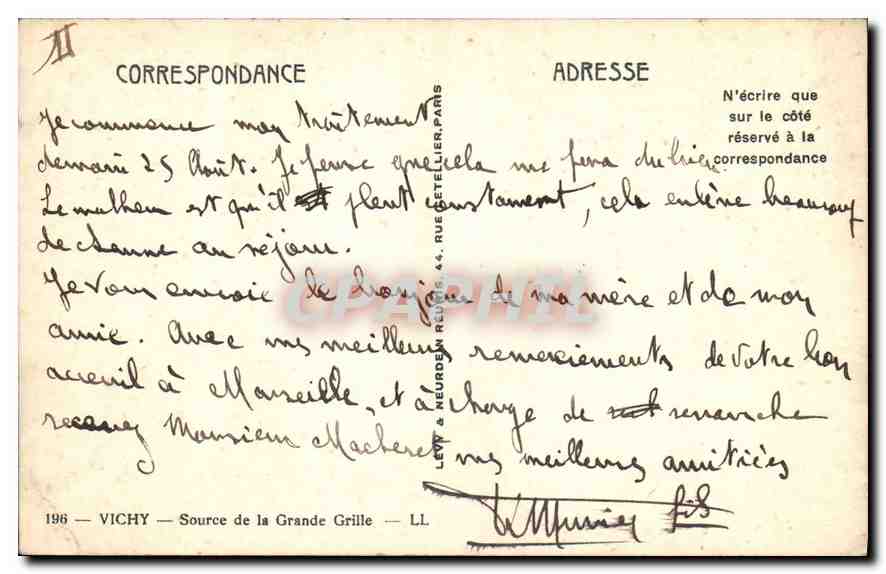 II
CORRESPONDANCE
ADRESSE
N'écrire que
sur le côté
réservé à la
correspondance
Je commence mon traitement
demain 25 Août. Je pense que cela me fera du bien
Le malheur est qu'il pleut constament, cela enlève beaucoup
de charme au séjour.
Je vous envoie le bonjour de ma mère et de mon
amie. Avec mes meilleurs remerciements de votre bon
acceuil à Marseille, et à charge de revanche
recevez Monsieur Macheret mes meilleures amitiées
fils
LEVY & NEURDEIN REUNIS, 44, RUE LETELLIER, PARIS
CPAPHIL
196 — VICHY — Source de la Grande Grille — LL